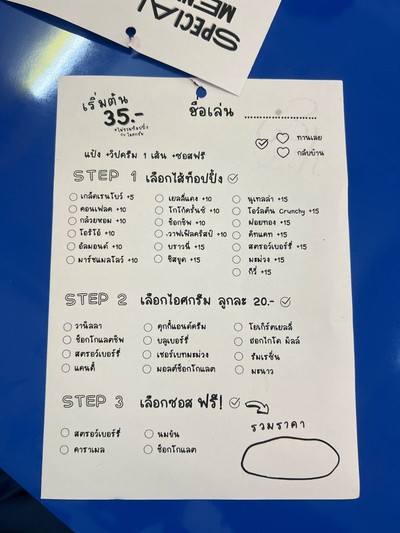 SPECIAL
MEN
เริ่มต้น
35.-
ชื่อเล่น ....................
ทานเลย
กลับบ้าน
แป้ง +วิปครีม 1 เส้น +ซอสฟรี
STEP 1 เลือกไส้ท็อปปิ้ง
เกล็ดเรนโบว์ +5 เยลลี่แดง +10 นูเทลล่า +15
คอนเฟลค +10 โกโก้ครั้นช์ +10 โอวัลติน Crunchy +15
กล้วยหอม +10 ช็อกชิพ +10 ฝอยทอง +15
โอริโอ้ +10 วาฟเฟิลคริสป์ +10 คิทแคท +15
อัลมอนด์ +10 บราวนี่ +15 สตรอว์เบอร์รี่ +15
มาร์ชแมลโลว์ +10 ชิสขูด +15 มะม่วง +15
กีวี่ +15
STEP 2 เลือกไอศกรีม ลูกละ 20.-
วานิลลา คุกกี้แอนด์ครีม โยเกิร์ตเยลลี่
ช็อกโกแลตชิพ บลูเบอร์รี่ ฮอกไกโด มิลล์
สตรอว์เบอร์รี่ เชอร์เบทมะม่วง รัมเรซิ่น
แคนดี้ มอลต์ช็อกโกแลต มะนาว
STEP 3 เลือกซอส ฟรี!
รวมราคา
สตรอว์เบอร์รี่ นมข้น
คาราเมล ช็อกโกแลต